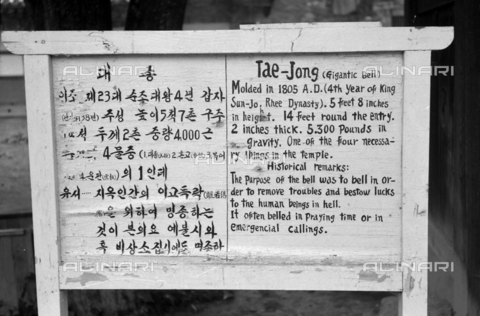 대 종
이조 제23대 순조대왕 4년 갑자
주성 높이 5척 7촌 구주
척 두께 2촌 중량 4,000근
4물중
의 1인데
유서 지옥인간의 이고득락
은 위하여 명종하는
것이 본의요 예불시와
혹 비상소집시에도 명종하
Tae-Jong (Gigantic Bell)
Molded in 1805 A.D. (4th year of King
Sun-Jo, Rhee Dynasty). 5 feet 8 inches
in height. 14 feet round the entry.
2 inches thick. 5.300 Pounds in
gravity. One of the four necessa-
ry things in the temple.
Historical remarks:
The purpose of the bell was to bell in or-
der to remove troubles and bestow lucks
to the human beings in hell.
It often belled in praying time or in
emergencial callings.
ALINARI